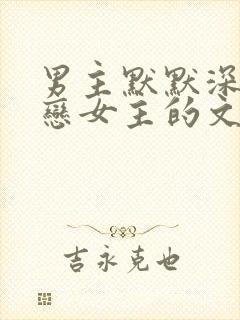 男主默默深
戀女主的文
吉永克也